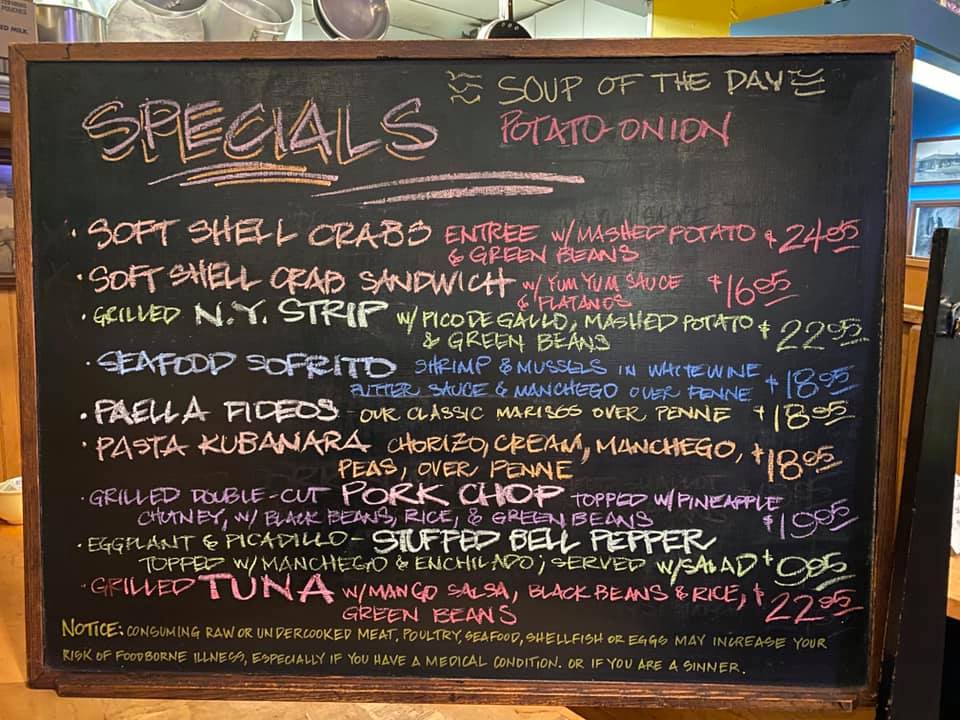 SOUP OF THE DAY
SPECIALS
POTATO-ONION
· SOFT SHELL CRABS ENTREE W/MASHED POTATO $2495
& GREEN BEANS
· SOFT SHELL CRAB SANDWICH W/ YUM YUM SAUCE $1695
& PLATANOS
· GRILLED N.Y. STRIP W/ PICO DE GALLO, MASHED POTATO $2295
& GREEN BEANS
· SEAFOOD SOFRITO SHRIMP & MUSSELS IN WHITE WINE
BUTTER SAUCE & MANCHEGO OVER PENNE $1895
· PAELLA FIDEOS - OUR CLASSIC MARISCOS OVER PENNE $1895
· PASTA KUBANARA CHORIZO, CREAM, MANCHEGO,
PEAS, OVER PENNE $1895
· GRILLED DOUBLE-CUT PORK CHOP TOPPED W/ PINEAPPLE
CHUTNEY, W/ BLACK BEANS, RICE, & GREEN BEANS $1995
· EGGPLANT & PICADILLO - STUFFED BELL PEPPER
TOPPED W/ MANCHEGO & ENCHILADO, SERVED W/SALAD $995
· GRILLED TUNA W/MANGO SALSA, BLACK BEANS & RICE, $2295
GREEN BEANS
NOTICE: CONSUMING RAW OR UNDERCOOKED MEAT, POULTRY, SEAFOOD, SHELLFISH OR EGGS MAY INCREASE YOUR
RISK OF FOODBORNE ILLNESS, ESPECIALLY IF YOU HAVE A MEDICAL CONDITION. OR IF YOU ARE A SINNER.